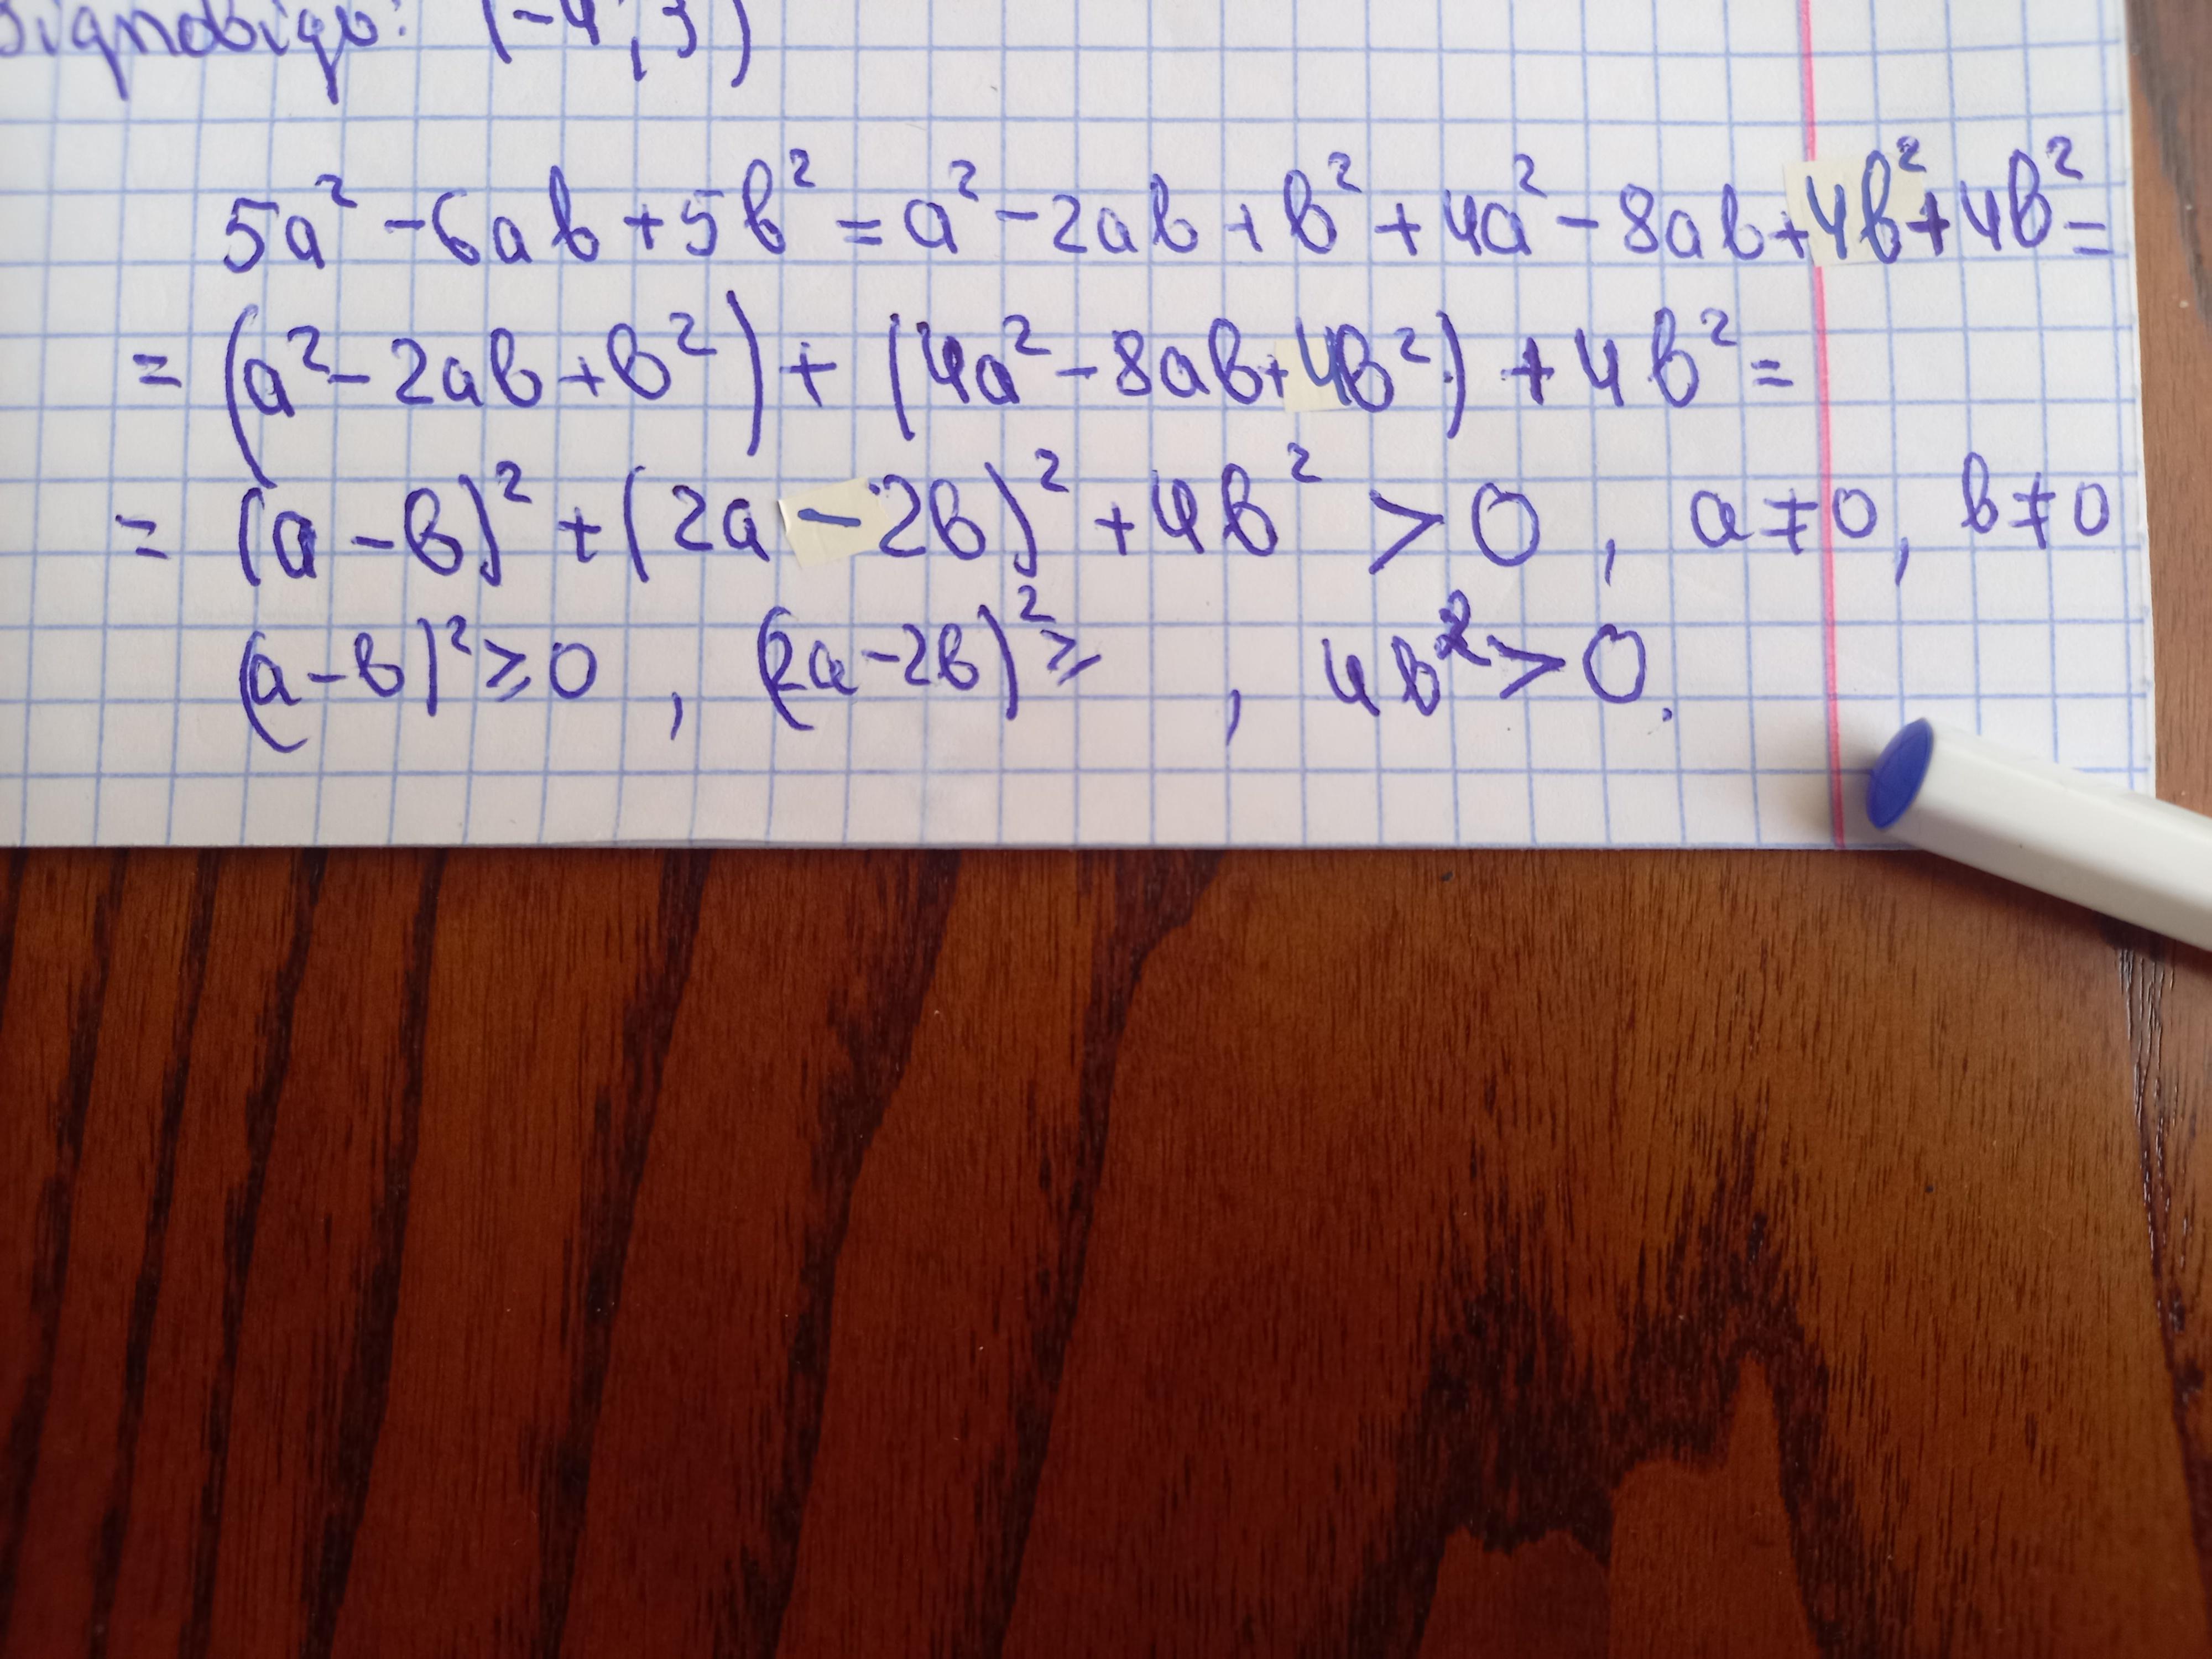 (-4; 3)
5a² - 6ab + 5b² = a² - 2ab + b² + 4a² - 8ab + 4b² + 4b² =
= (a² - 2ab + b²) + (4a² - 8ab + 4b²) + 4b² =
= (a - b)² + (2a - 2b)² + 4b² > 0, a ≠ 0, b ≠ 0
(a - b)² ≥ 0, (2a - 2b)² ≥ , 4b² > 0.